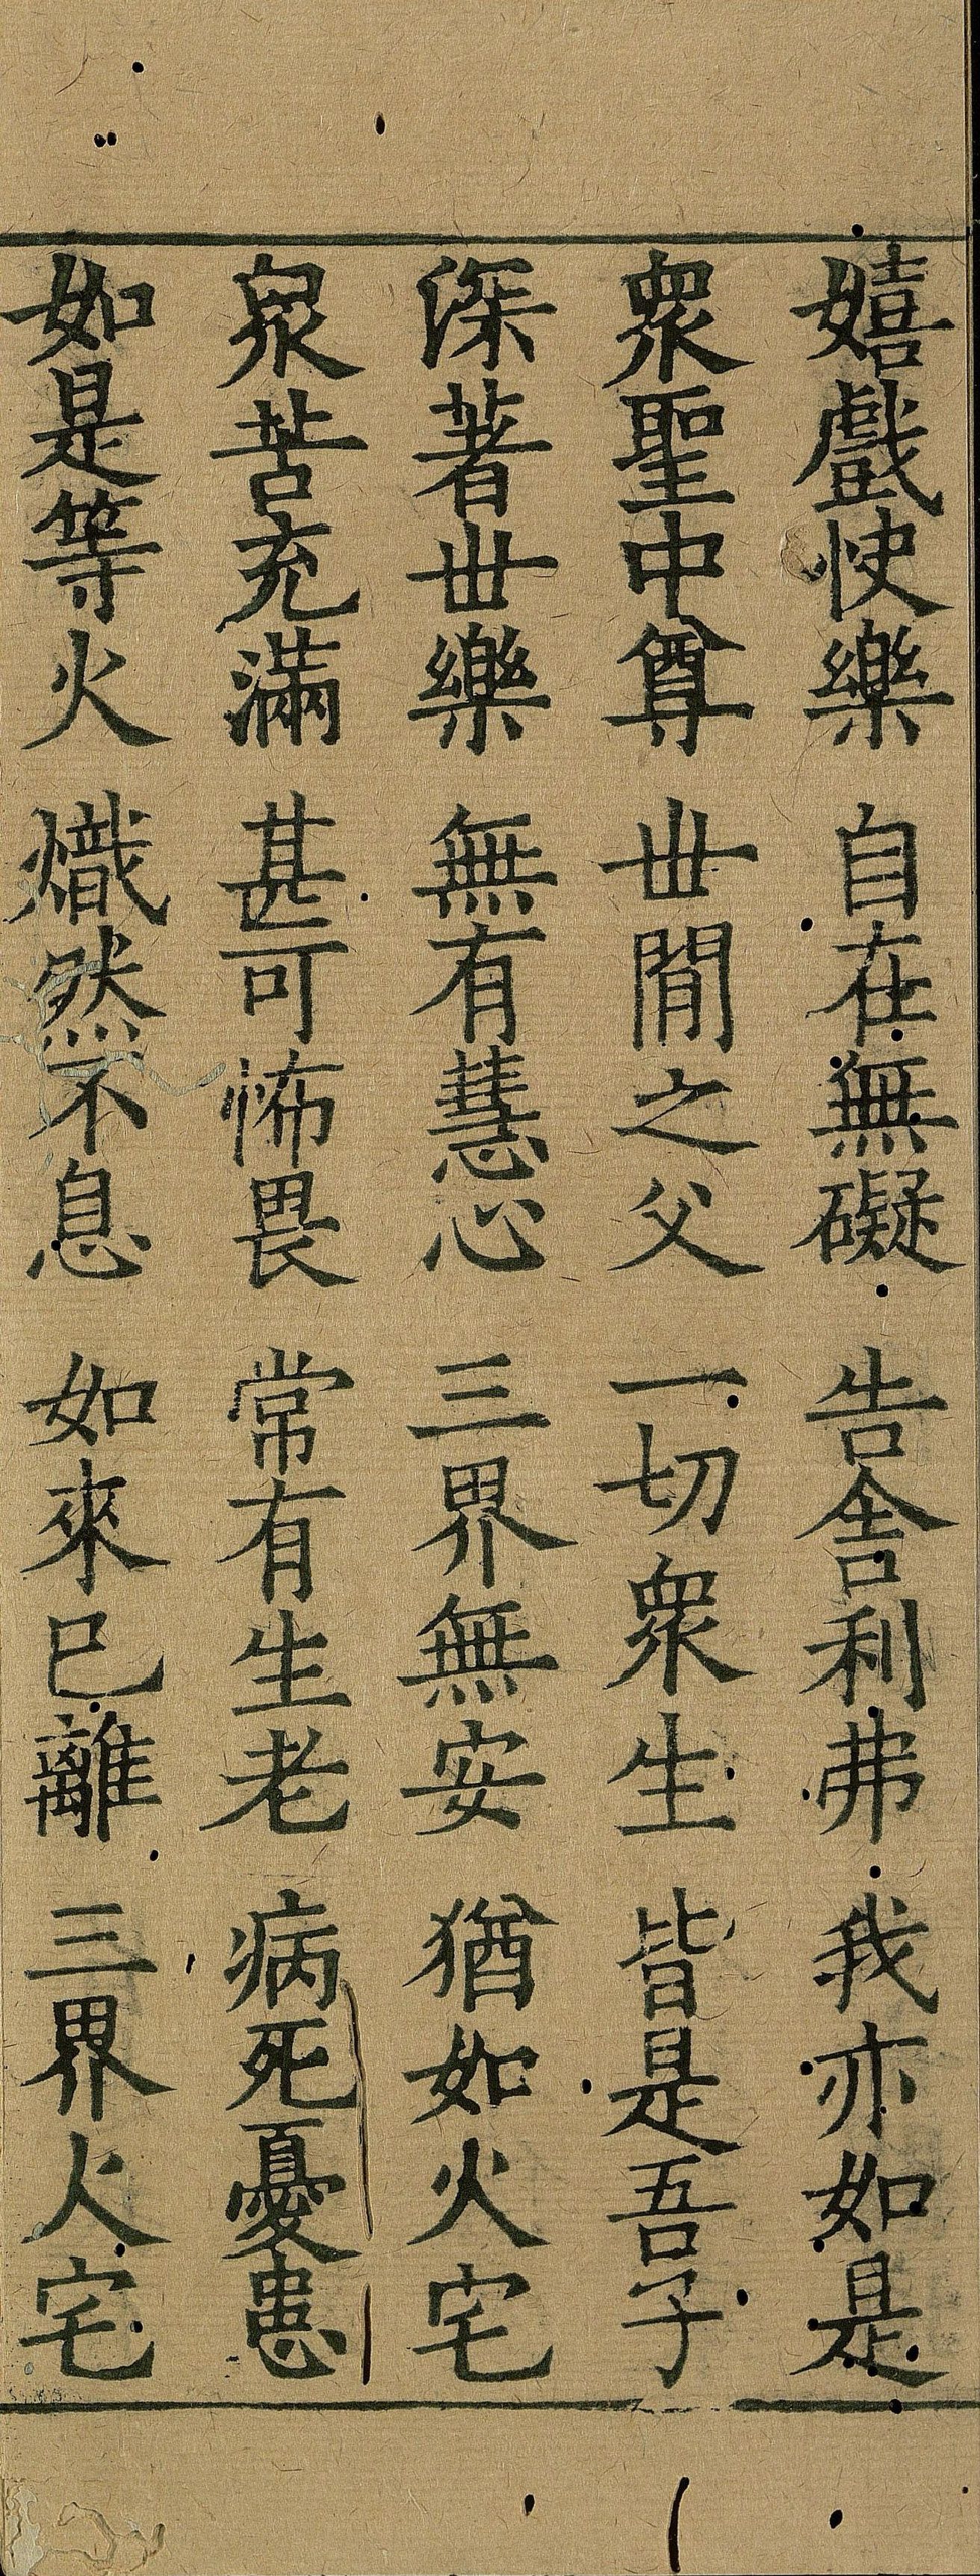 嬉戲快樂 自在無礙 告舍利弗 我亦如是
衆聖中尊 世間之父 一切衆生 皆是吾子
深著世樂 無有慧心 三界無安 猶如火宅
衆苦充滿 甚可怖畏 常有生老 病死憂患
如是等火 熾然不息 如來已離 三界火宅